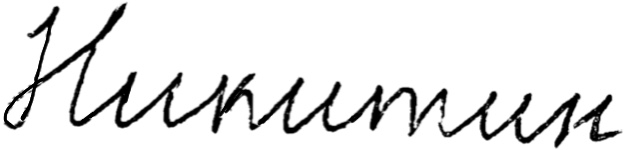 Никитин